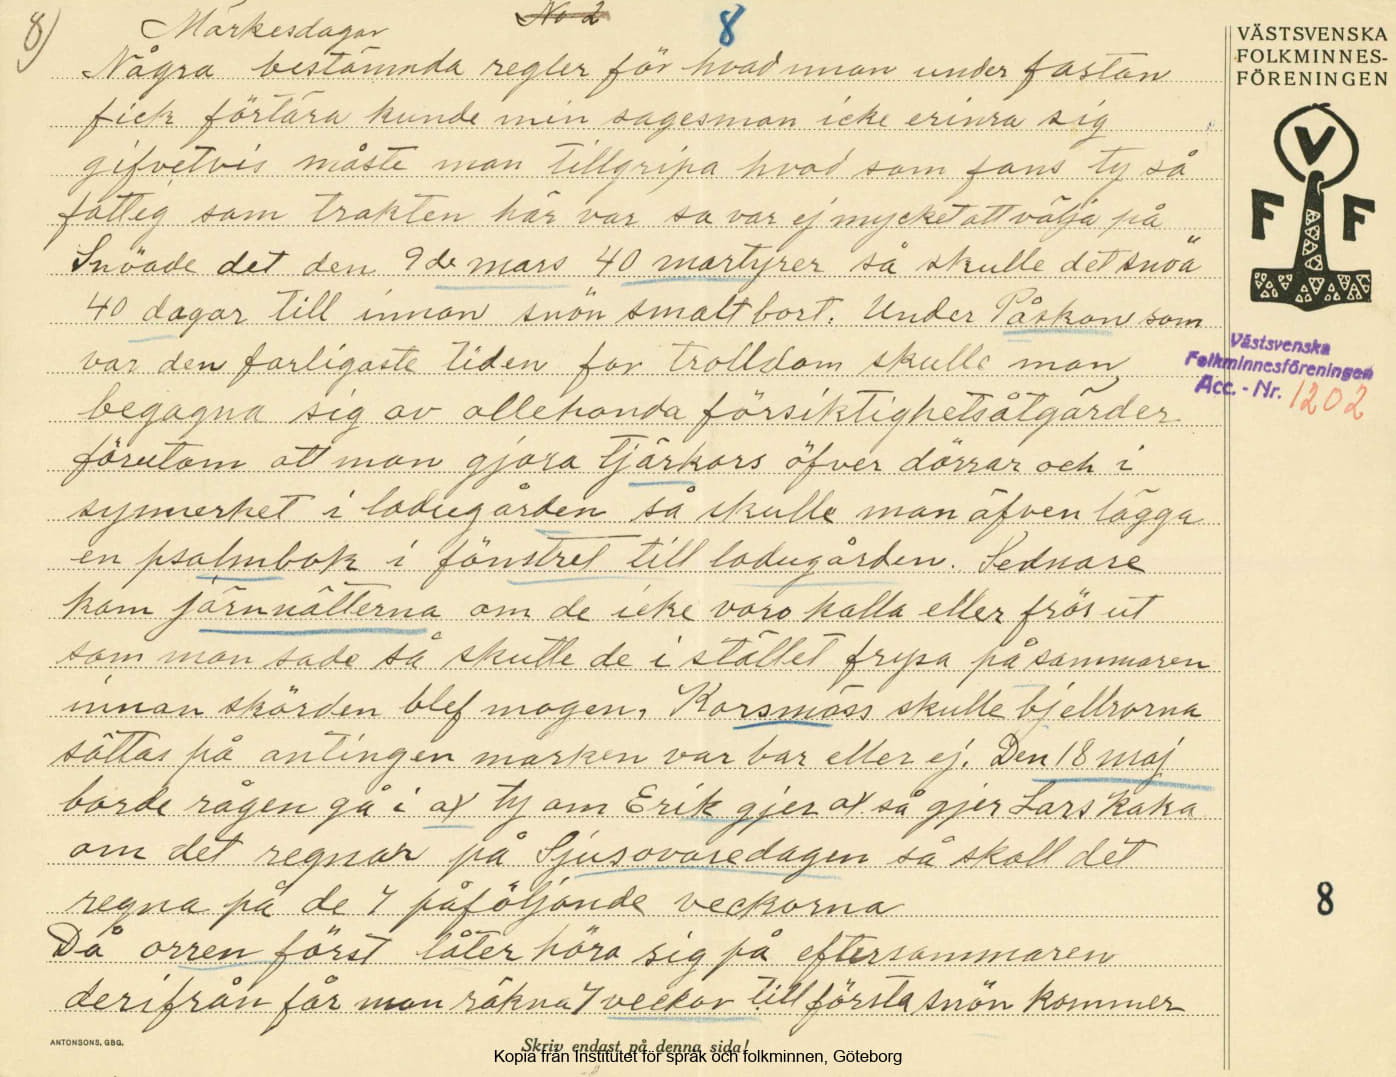 8)
Märkesdagar
No 2
8
Några bestämnda regler för hvad man under fastan
fick förtära kunde min sagesman icke erinra sig
gifvetvis måste man tillgripa hvad som fans ty så
fattig som trakten här var så var ej mycket att välja på
Snöade det den 9de mars 40 martyrer så skulle det snöa
40 dagar till innan snön smalt bort. Under Påskan som
var den farligaste tiden for trolldom skulle man
begagna sig av allehanda försiktighetsåtgärder
förutom att man gjora tjärkors öfver dörrar och i
synnerhet i ladugården så skulle man äfven lägga
en psalmbok i fönstret till ladugården. Sednare
kom järnnätterna om de icke voro kalla eller frös ut
som man sade så skulle de i stället frysa på sommaren
innan skörden blef mogen, Korsmäss skulle bjellrorna
sättas på antingen marken var bar eller ej. Den 18 maj
borde rågen gå i ax ty om Erik gjer ax så gjer Lars kaka
om det regnar på Sjusovaredagen så skall det
regna på de 7 påföljande veckorna
Då orren först låter höra sig på eftersommaren
derifrån får man räkna 7 veckor till första snön kommer
VÄSTSVENSKA
FOLKMINNES-
FÖRENINGEN
V
F F
Västsvenska
Folkminnesföreningen
Acc. - Nr. 1202
8
ANTONSONS, GBG.
Skriv endast på denna sida!
Kopia från Institutet för språk och folkminnen, Göteborg